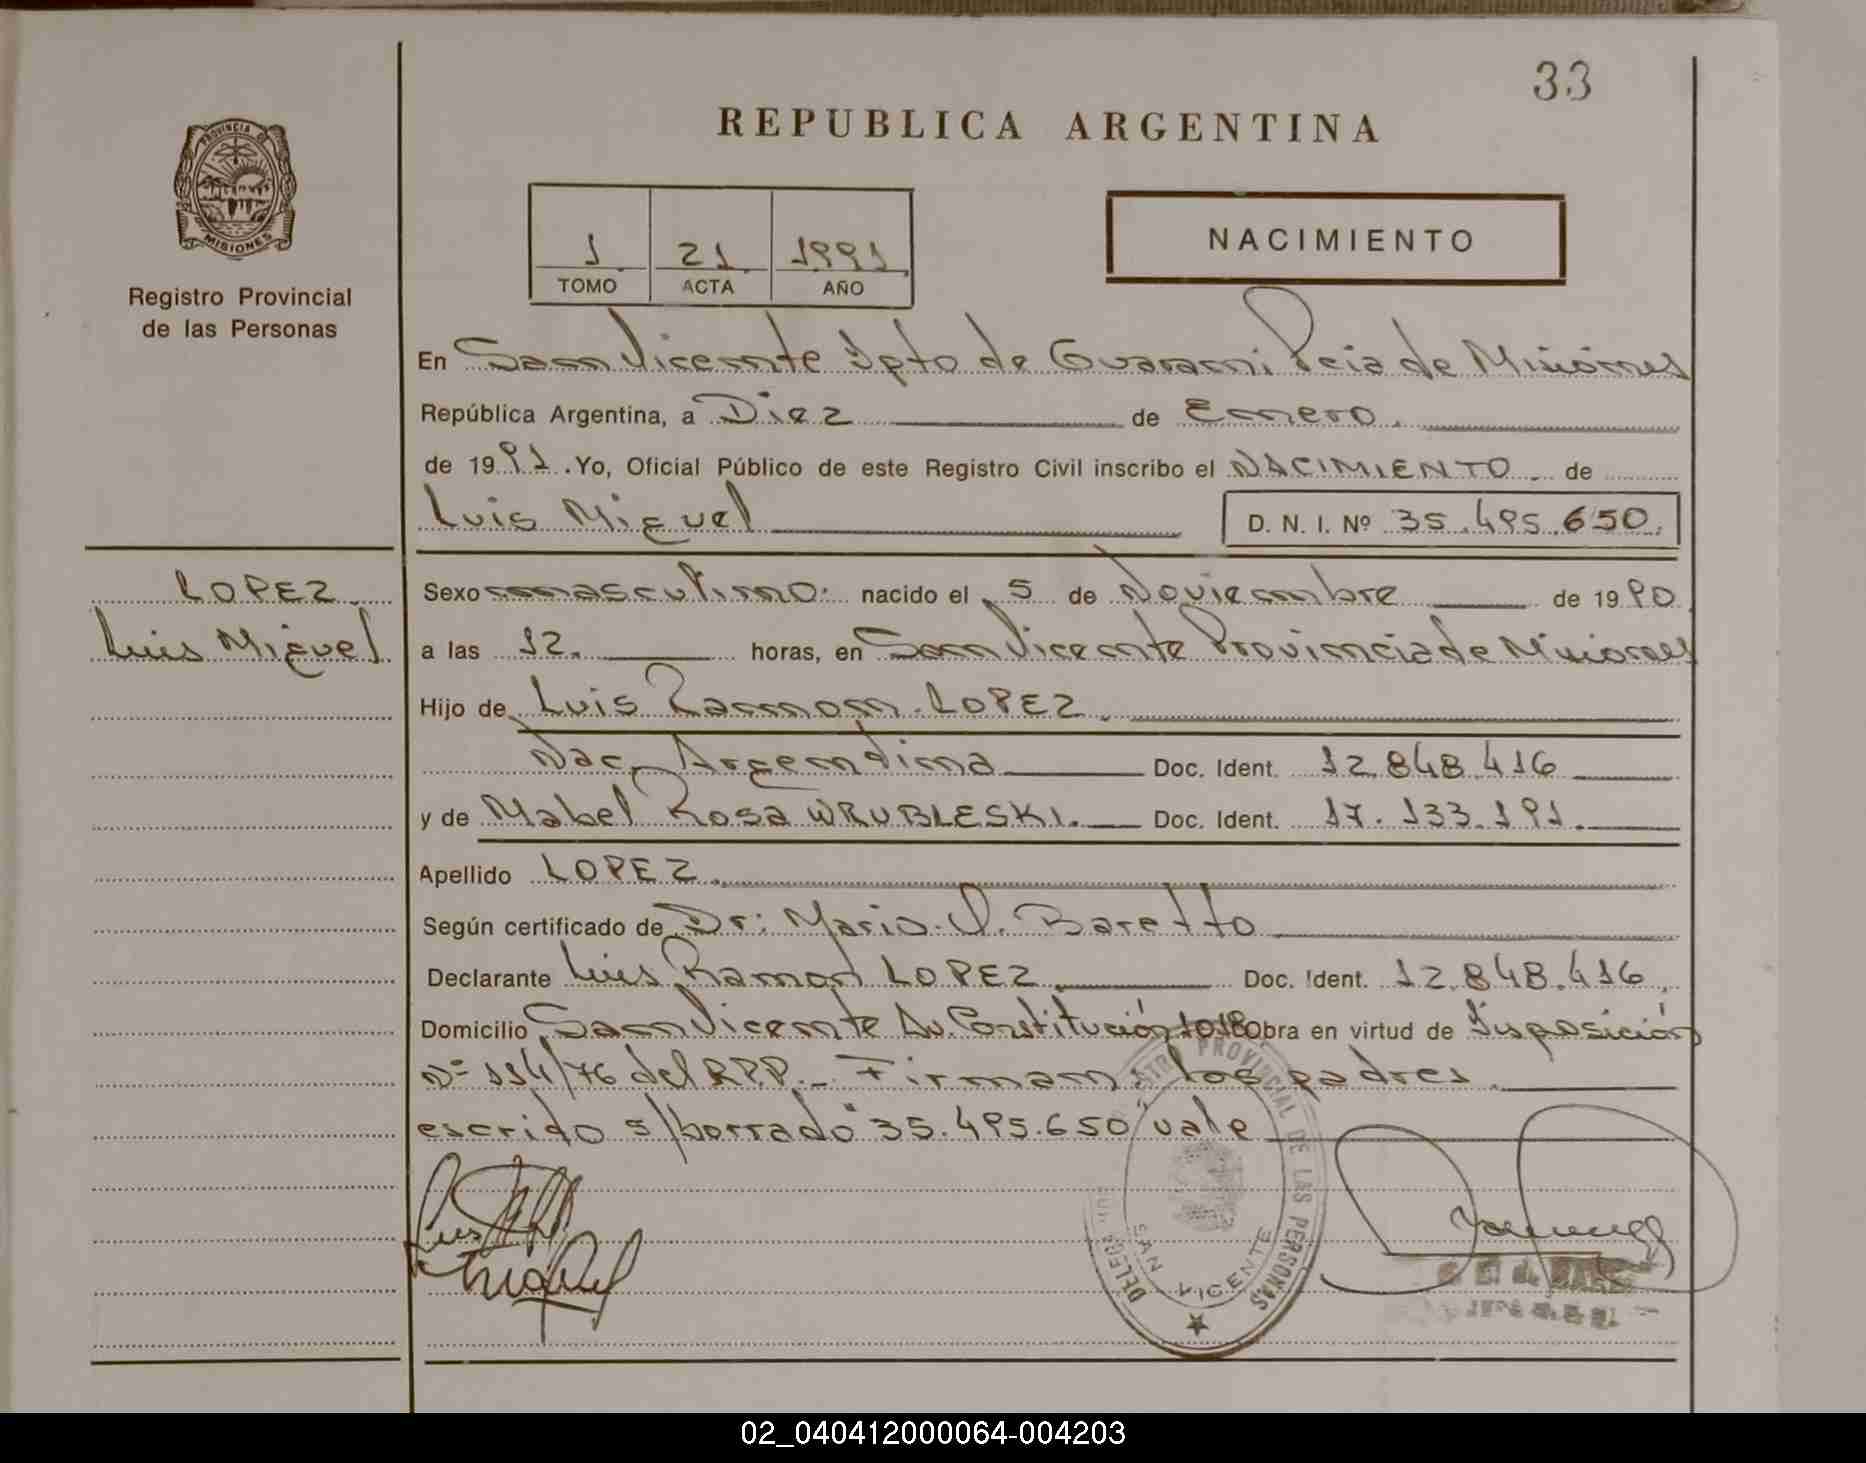 33
REPUBLICA ARGENTINA
PROVINCIA DE
MISIONES
Registro Provincial
de las Personas
1 21 1991
TOMO ACTA AÑO
NACIMIENTO
En San Vicente Dpto de Guarani Pcia de Misiones
República Argentina, a Diez de Enero.
de 1991. Yo, Oficial Público de este Registro Civil inscribo el NACIMIENTO de
Luis Miguel D. N. I. Nº 35.495.650.
LOPEZ
Luis Miguel
Sexo masculino. nacido el 5 de Noviembre de 1990
a las 12. horas, en San Vicente Provincia de Misiones
Hijo de Luis Ramon LOPEZ.
Nac. Argentina Doc. Ident. 12.848.416
y de Mabel Rosa WRUBLESKI. Doc. Ident. 17.133.191.
Apellido LOPEZ.
Según certificado de Dr: Mario. V. Baretto
Declarante Luis Ramon LOPEZ Doc. Ident. 12.848.416.
Domicilio San Vicente Av. Constitución 1018 Obra en virtud de Disposición
Nº 114/76 del RPP.- Firman: los padres.
escrido s/borrado "35.495.650" vale
PROVINCIAL DE LAS PERSONAS
SAN VICENTE
02_040412000064-004203